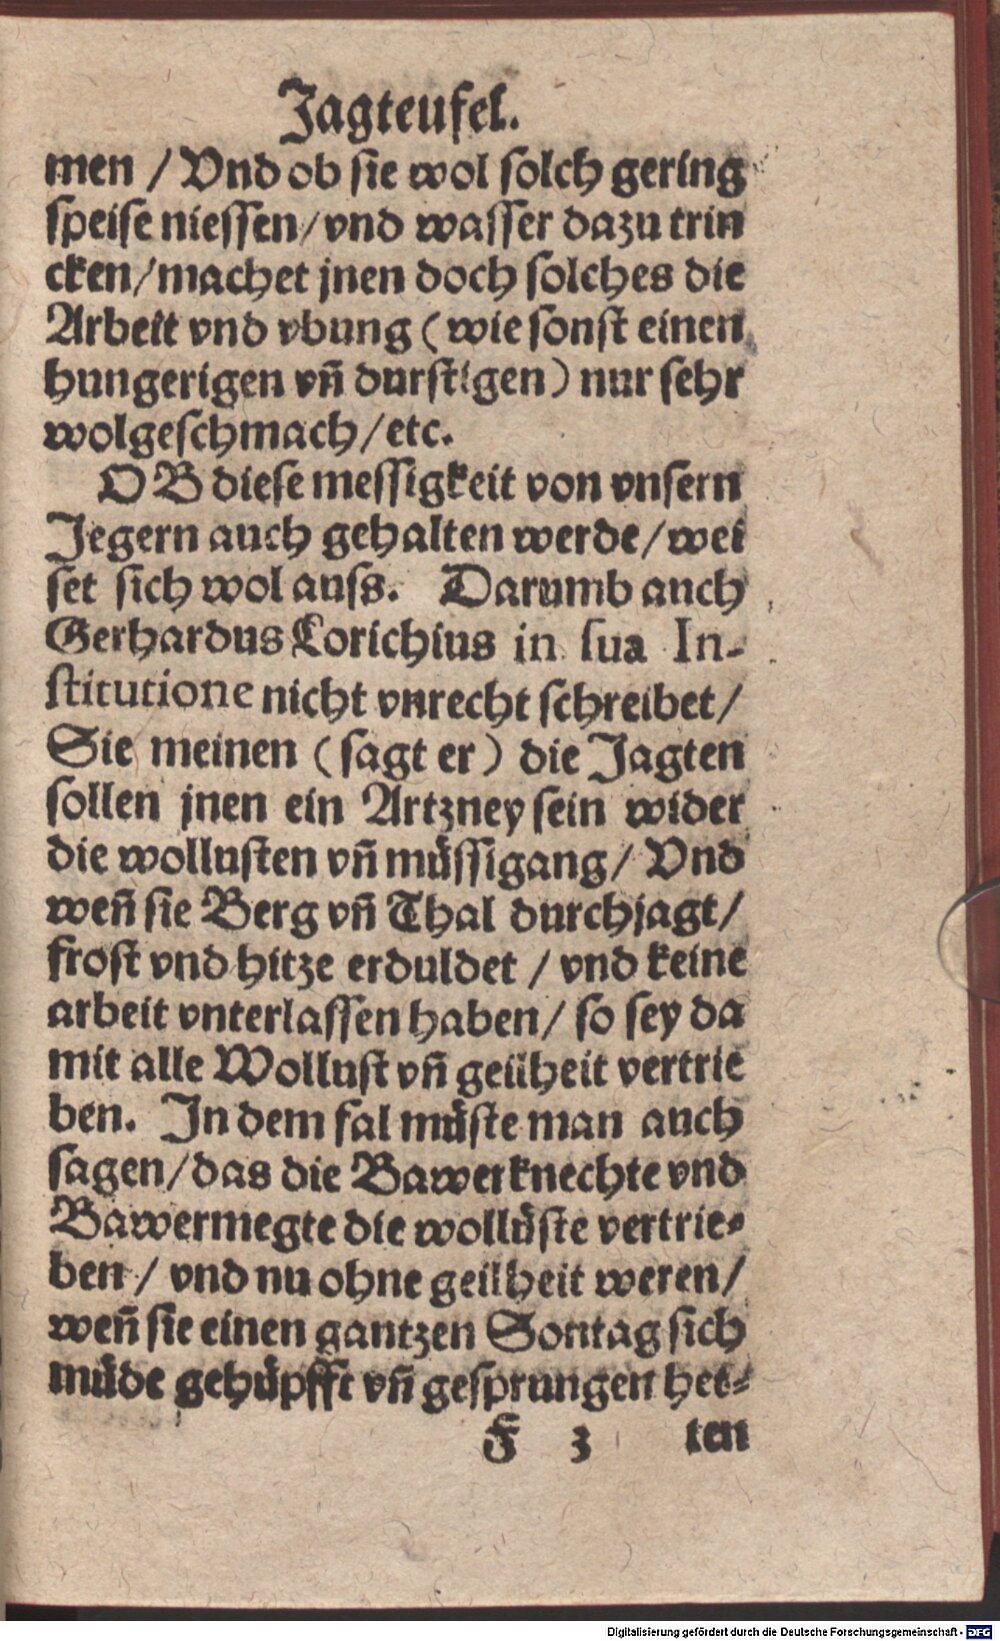 Jagteufel.
men / Vnd ob sie wol solch gering
speise niessen / vnd wasser dazu trin
cken / machet jnen doch solches die
Arbeit vnd vbung ( wie sonst einen
hungerigen vñ durstigen ) nur sehr
wolgeschmach / etc.
OB diese messigkeit von vnsern
Jegern auch gehalten werde / wei
set sich wol auss. Darumb auch
Gerhardus Lorichius in sua In-
stitutione nicht vnrecht schreibet /
Sie meinen ( sagt er ) die Jagten
sollen jnen ein Artzney sein wider
die wollusten vñ müssigang / Vnd
weñ sie Berg vñ Thal durchjagt /
frost vnd hitze erduldet / vnd keine
arbeit vnterlassen haben / so sey da
mit alle Wollust vñ geilheit vertrie
ben. In dem fal müste man auch
sagen / das die Bawerknechte vnd
Bawermegte die wollüste vertrie-
ben / vnd nu ohne geilheit weren /
weñ sie einen gantzen Sontag sich
müde gehüpfft vñ gesprungen het-
F 3 ten
Digitalisierung gefördert durch die Deutsche Forschungsgemeinschaft - DFG